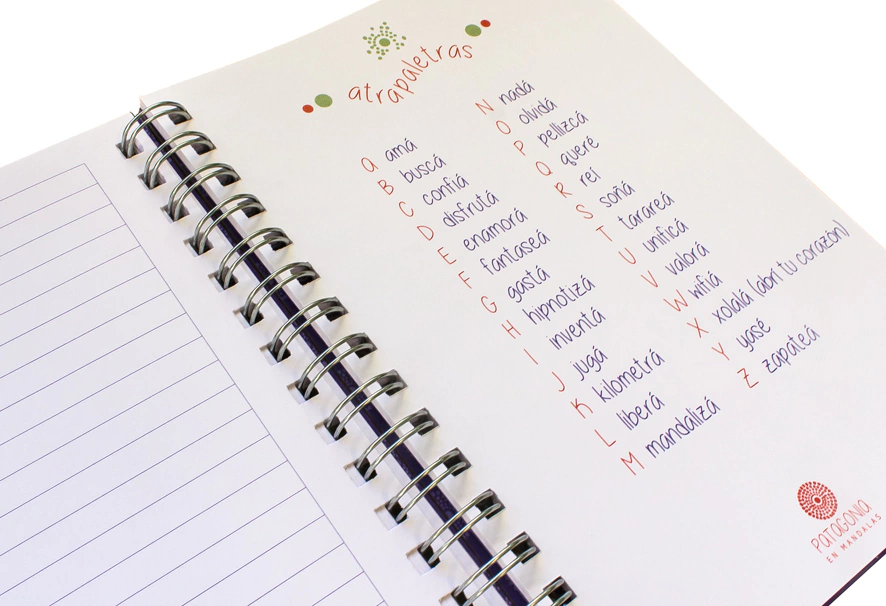 atrapaletras
A amá
B buscá
C confiá
D disfrutá
E enamorá
F fantaseá
G gastá
H hipnotizá
I inventá
J jugá
K kilometrá
L liberá
M mandalizá
N nadá
O olvidá
P pellizcá
Q queré
R reí
S soñá
T tarareá
U unificá
V valorá
W wifiá
X xolalá (abrí tu corazón)
Y yasé
Z zapateá
PATAGONIA
EN MANDALAS